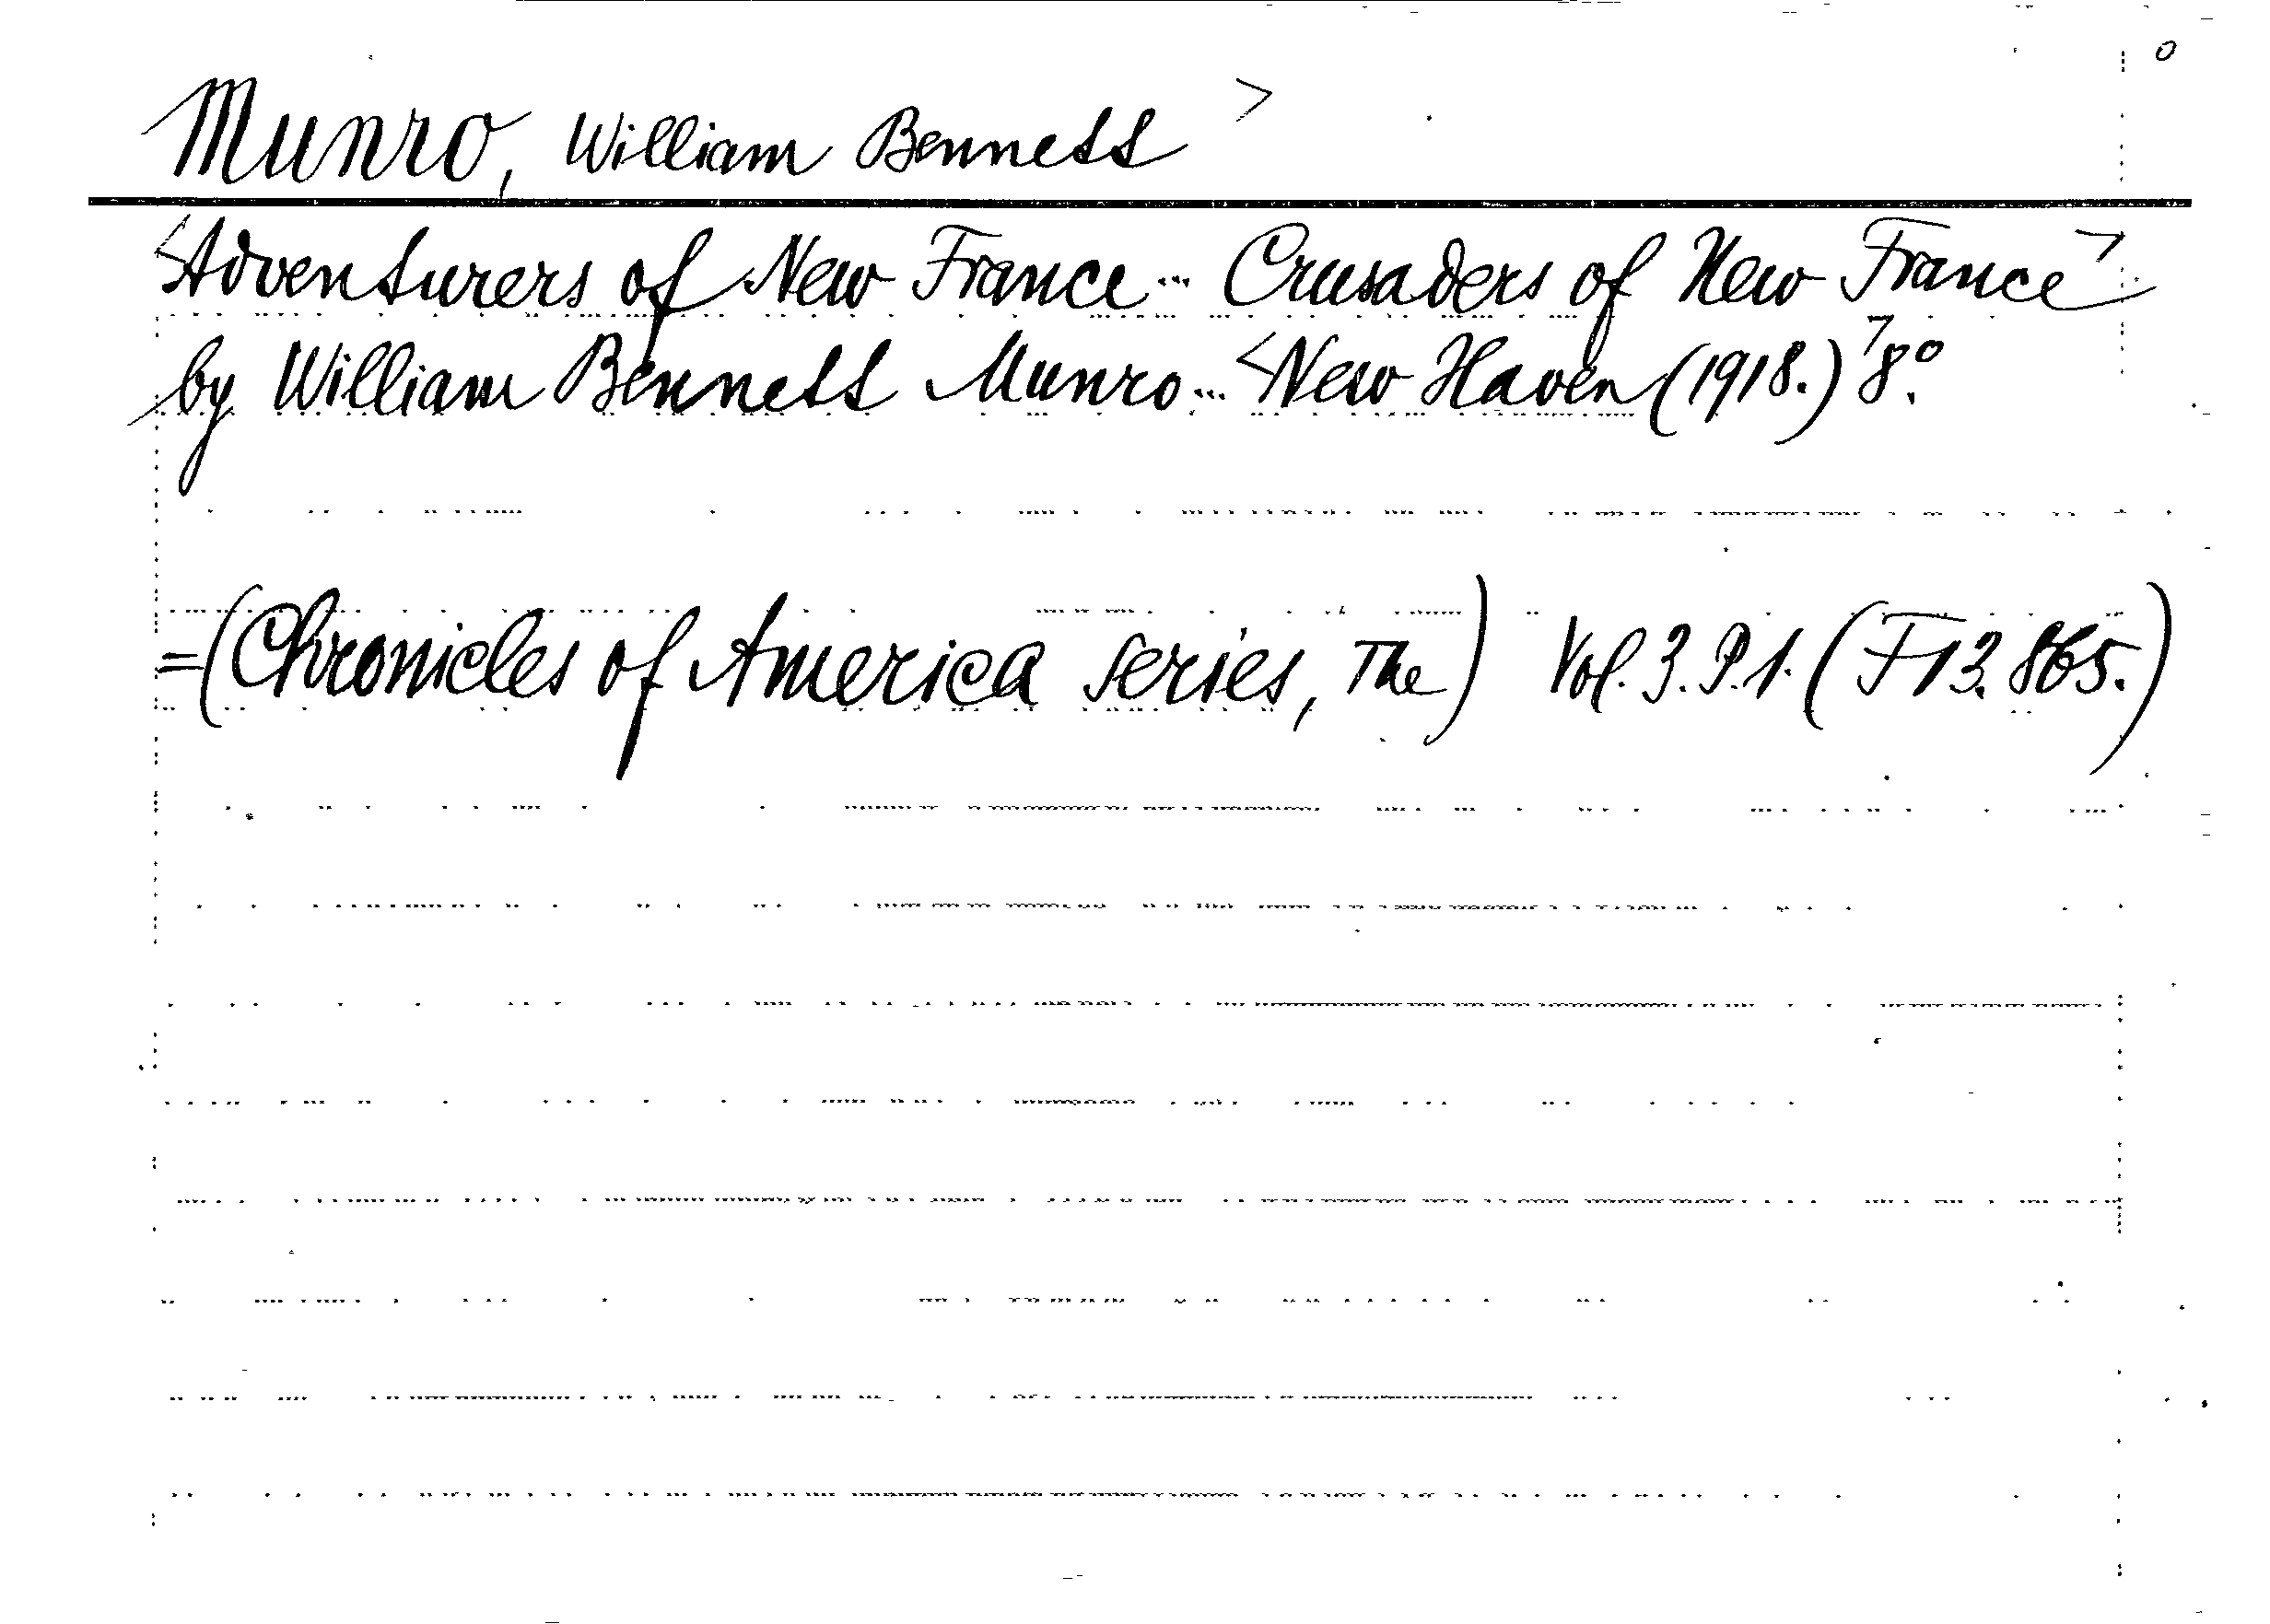 Munro, William Bennett >
<Adventurers of New France... Crusaders of New France>
by William Bennett Munro... <New Haven (1918.)> 8°.
=(Chronicles of America series, The) Vol. 3. P. 1. (F 13. 865.)